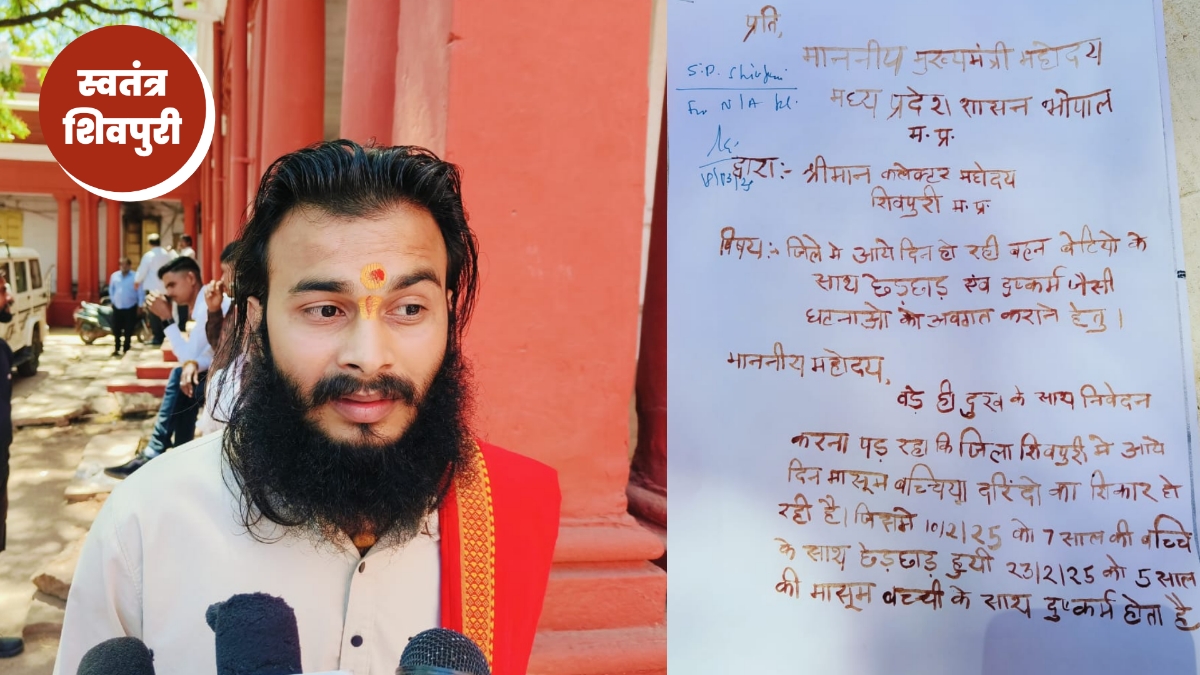 स्वतंत्र
शिवपुरी
प्रति,
माननीय मुख्यमंत्री महोदय
मध्य प्रदेश शासन भोपाल
म. प्र.
S.P. Shivpuri
For N/A pl.
द्वारा:- श्रीमान कलेक्टर महोदय
शिवपुरी म. प्र.
विषय:- जिले मे आये दिन हो रही बहन बेटियो के
साथ छेड़छाड़ एंव दुष्कर्म जैसी
घटनाओ को अवगत कराने हेतु।
माननीय महोदय,
बड़े ही दुख के साथ निवेदन
करना पड़ रहा कि जिला शिवपुरी मे आये
दिन मासूम बच्चिया दरिंदो का शिकार हो
रही है। जिसमे 10/2/25 को 7 साल की बच्चि
के साथ छेड़छाड़ हुयी 23/2/25 को 5 साल
की मासूम बच्ची के साथ दुष्कर्म होता है